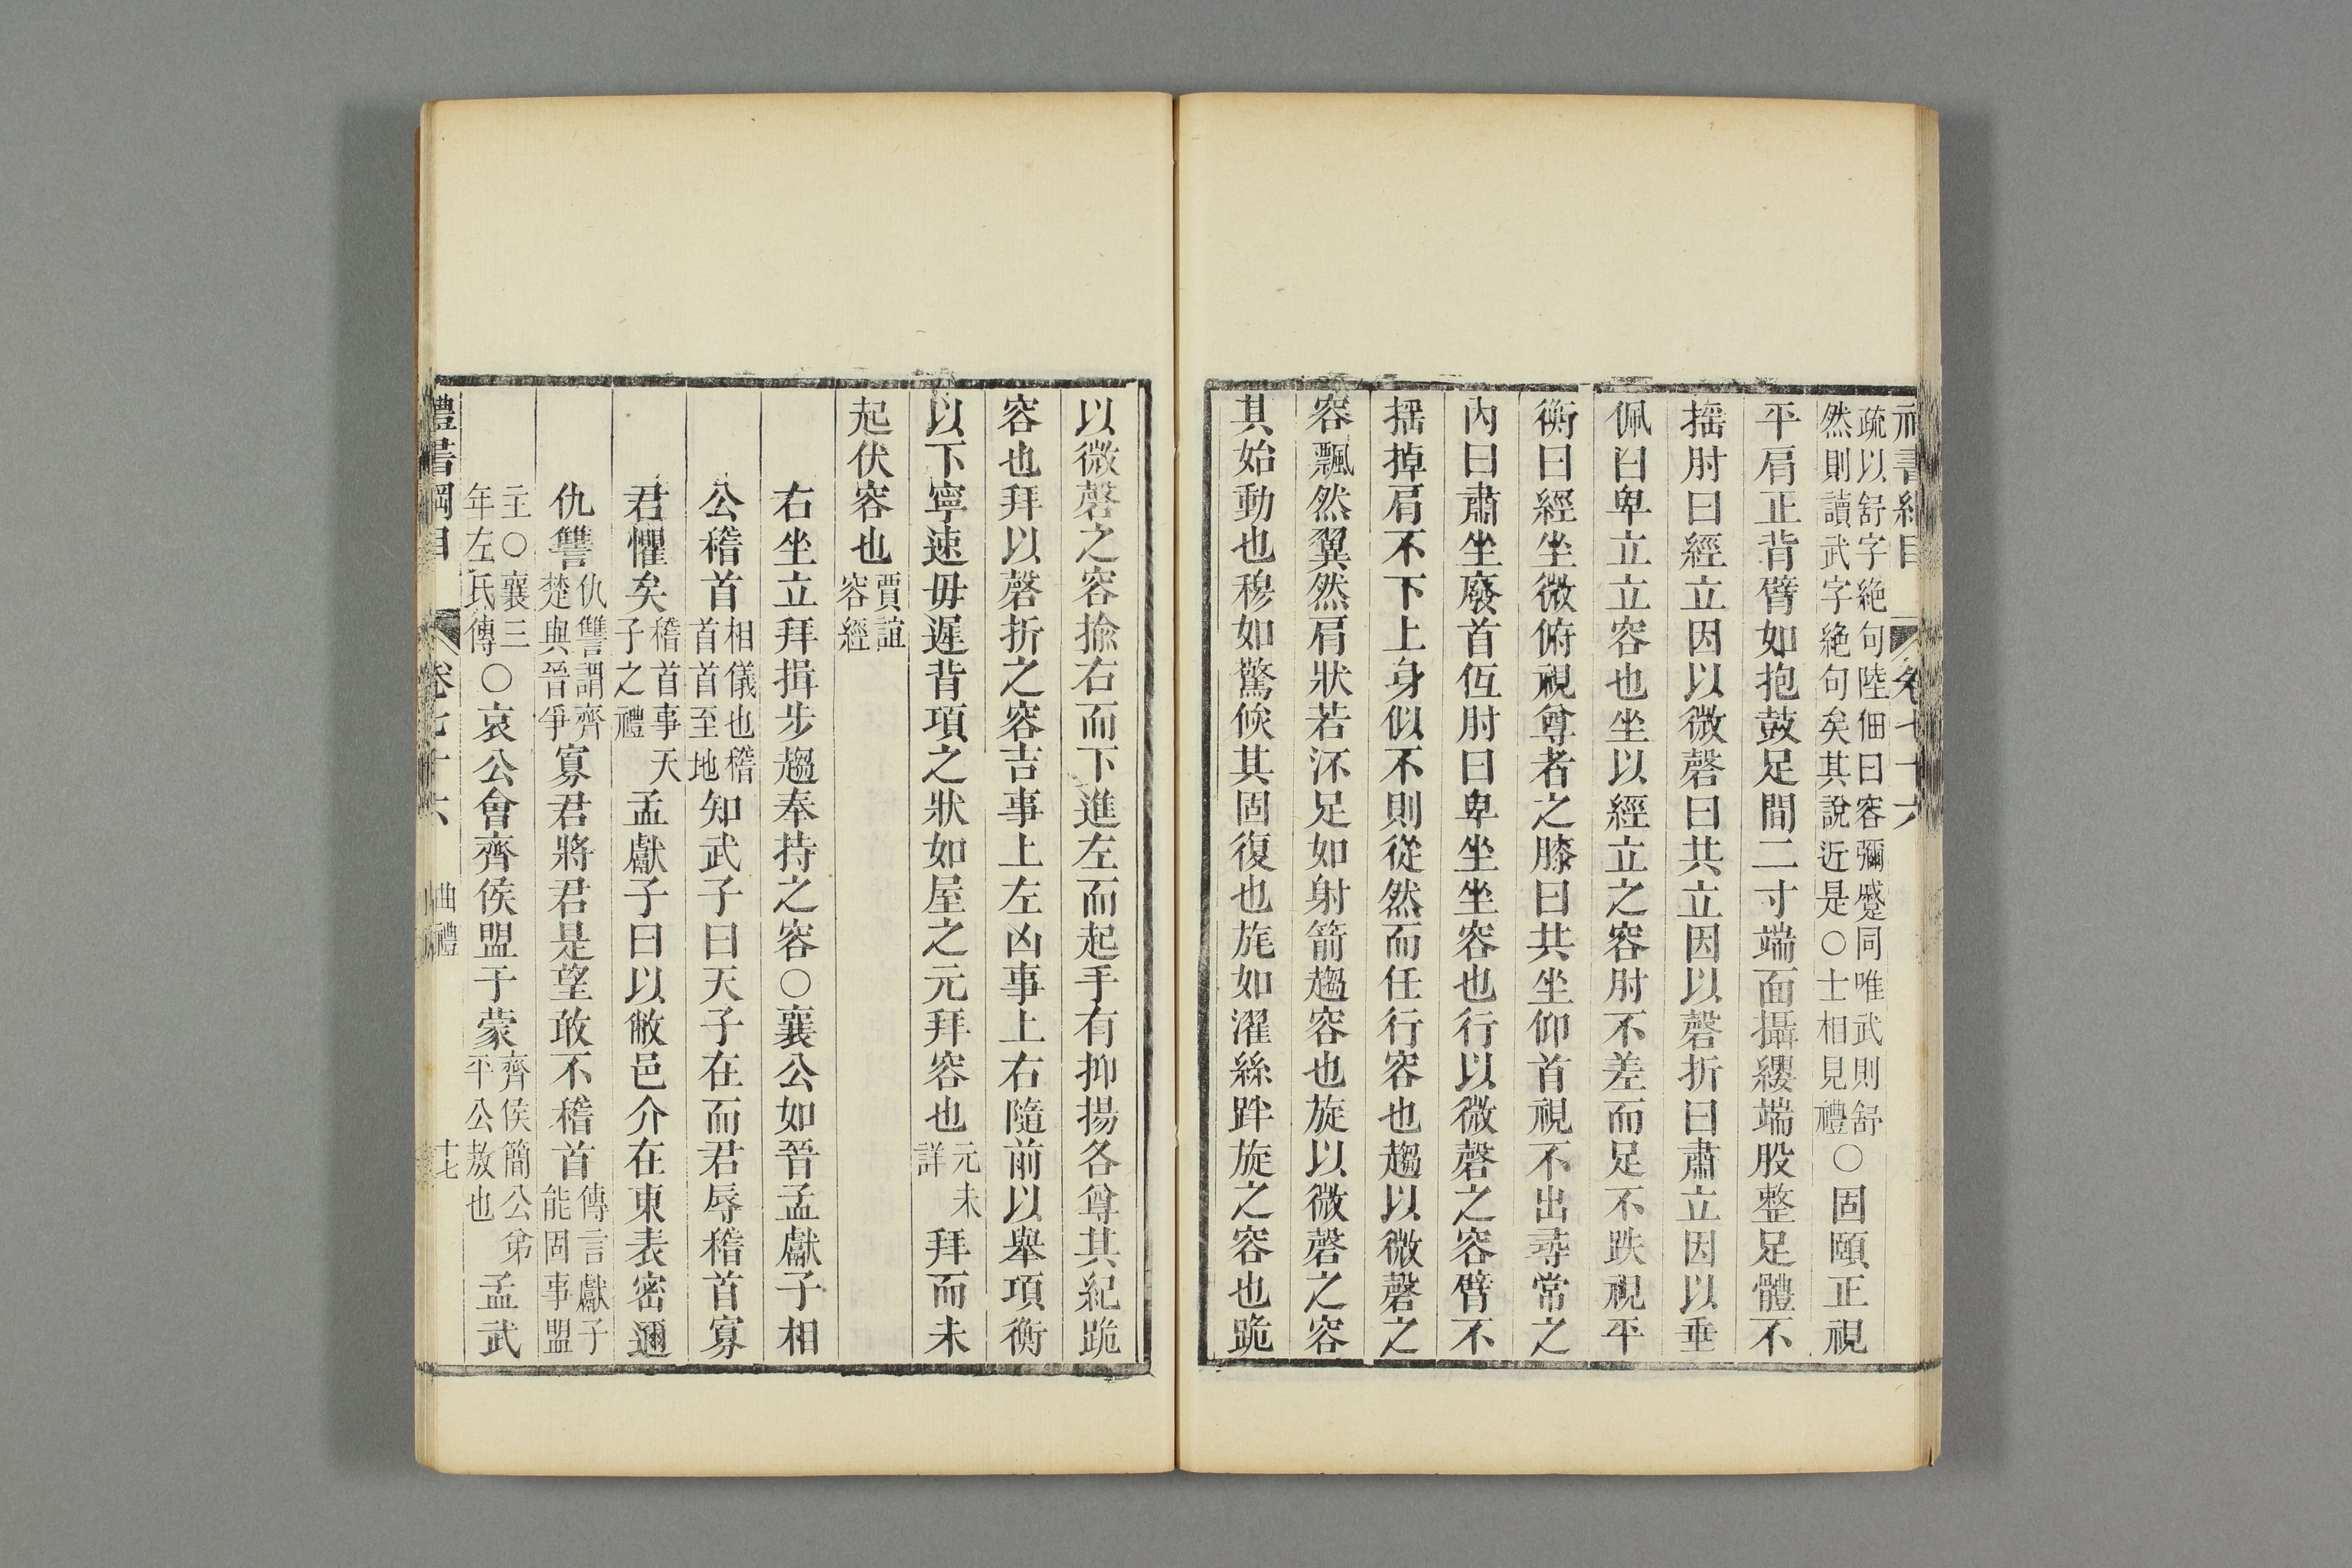 禮書綱目 卷七十六
疏以舒字絶句陸佃曰容彌蹙同唯武則舒然則讀武字絶句矣其說近是○士相見禮○固頤正視
平肩正背臂如抱鼓足間二寸端面攝纓端股整足體不
揺肘曰經立因以微磬曰共立因以磬折曰肅立因以垂
佩曰卑立立容也坐以經立之容肘不差而足不跌視平
衡曰經坐微俯視尊者之膝曰共坐仰首視不出尋常之
內曰肅坐廢首伍肘曰卑坐坐容也行以微磬之容臂不
揺掉肩不下上身似不則從然而任行容也趨以微磬之
容飄然翼然肩狀若沶足如射箭趨容也旋以微磬之容
其始動也穆如驚倐其固復也旄如濯絲跘旋之容也跪
以微磬之容揄右而下進左而起手有抑揚各尊其紀跪
容也拜以磬折之容吉事上左凶事上右隨前以舉項衡
以下寧速毋遲背項之狀如屋之元拜容也元未詳拜而未
起伏容也賈誼容經
右坐立拜揖步趨奉持之容○襄公如晉孟獻子相
公稽首相儀也稽首首至地知武子曰天子在而君辱稽首寡
君懼矣稽首事天子之禮孟獻子曰以敝邑介在東表密邇
仇讐仇讐謂齊楚與晉爭寡君將君是望敢不稽首傳言獻子能固事盟
主○襄三年左氏傳○哀公會齊侯盟于蒙齊侯簡公弟平公敖也孟武
禮書綱目 卷七十六 曲禮 十七